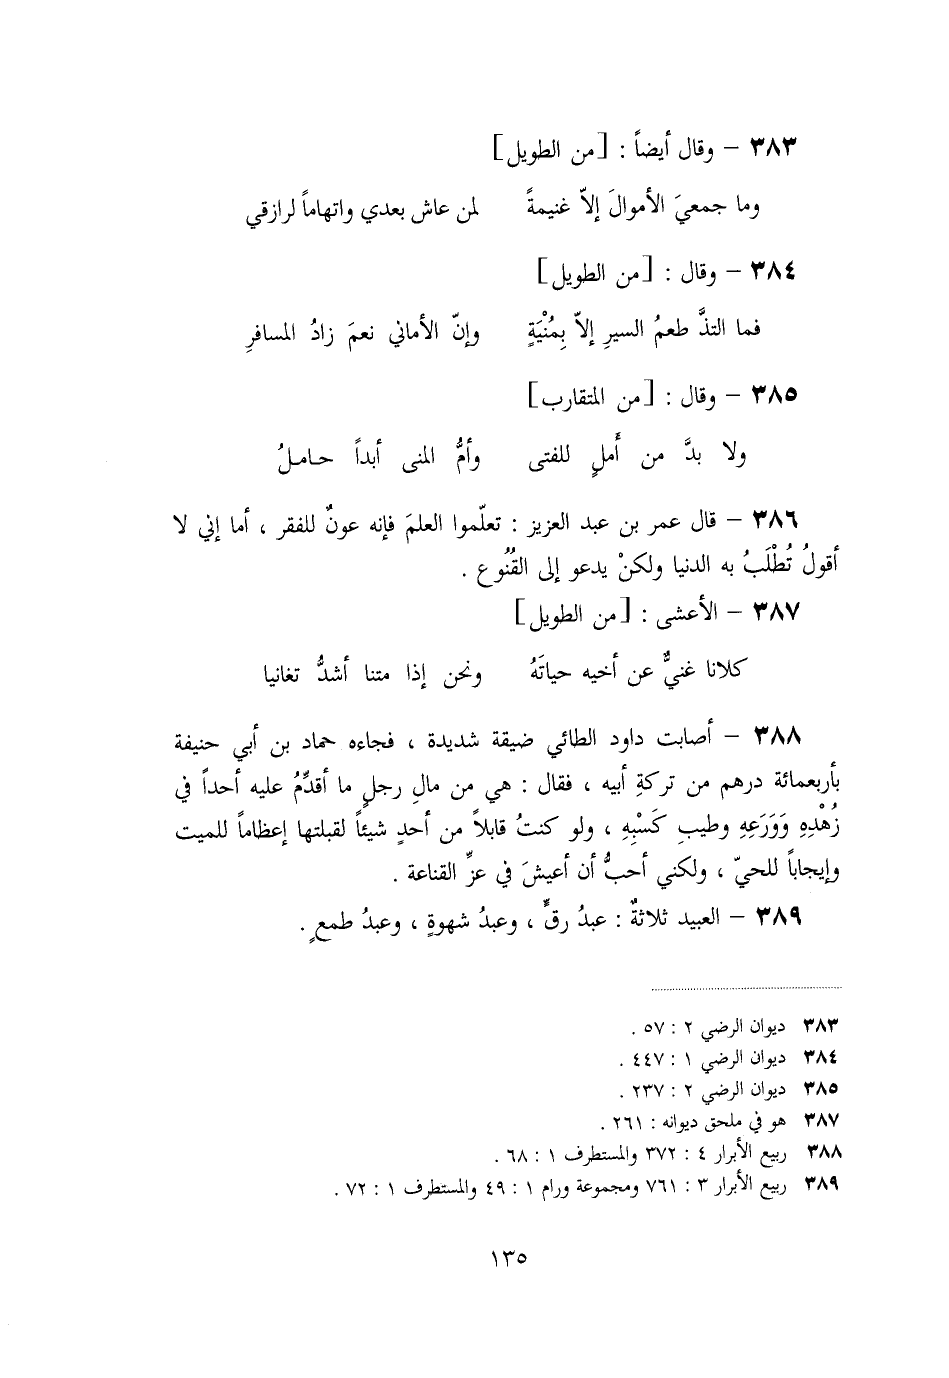 ٣٨٣ – وقال أيضاً : [من الطويل]
وما جمعيَ الأموالَ إلاّ غنيمةً لمن عاش بعدي واتهاماً لرازقي
٣٨٤ – وقال : [من الطويل]
فما التذَّ طعمُ السيرِ إلاّ بِمُنْيَةٍ وإنّ الأماني نعمَ زادُ المسافرِ
٣٨٥ – وقال : [من المتقارب]
ولا بدَّ من أَملٍ للفتى وأمُّ المنى أبداً حاملُ
٣٨٦ – قال عمر بن عبد العزيز : تعلّموا العلمَ فإنه عونٌ للفقر ، أما إني لا
أقولُ تُطْلَبُ به الدنيا ولكنْ يدعو إلى القُنُوع .
٣٨٧ – الأعشى : [من الطويل]
كلانا غنيٌّ عن أخيه حياتَهُ ونحن إذا متنا أشدُّ تغانيا
٣٨٨ – أصابت داود الطائي ضيقة شديدة ، فجاءه حماد بن أبي حنيفة
بأربعمائة درهم من تركةِ أبيه ، فقال : هي من مالِ رجلٍ ما أقدِّمُ عليه أحداً في
زُهْدِهِ وَوَرَعِهِ وطيبِ كَسْبِهِ ، ولو كنتُ قابلاً من أحدٍ شيئاً لقبلتها إعظاماً للميت
وإيجاباً للحيّ ، ولكني أحبُّ أن أعيشَ في عزِّ القناعة .
٣٨٩ – العبيد ثلاثةٌ : عبدُ رقٍّ ، وعبدُ شهوةٍ ، وعبدُ طمعٍ .
٣٨٣ ديوان الرضي ٢ : ٥٧ .
٣٨٤ ديوان الرضي ١ : ٤٤٧ .
٣٨٥ ديوان الرضي ٢ : ٢٣٧ .
٣٨٧ هو في ملحق ديوانه : ٢٦١ .
٣٨٨ ربيع الأبرار ٤ : ٣٧٢ والمستطرف ١ : ٦٨ .
٣٨٩ ربيع الأبرار ٣ : ٧٦١ ومجموعة ورام ١ : ٤٩ والمستطرف ١ : ٧٢ .
١٣٥